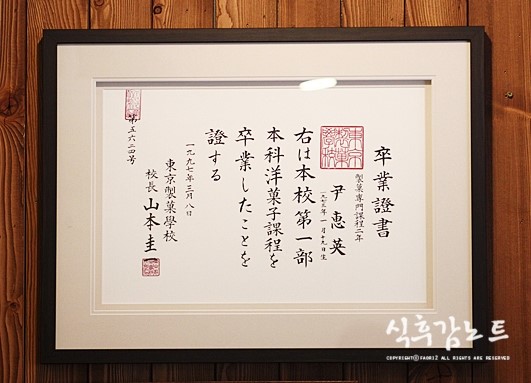 卒業證書
製菓専門課程二年
尹惠英
一九七三年一月十九日生
右は本校第一部
本科洋菓子課程を
卒業したことを
證する
一九九七年三月八日
東京製菓學校
校長 山本圭一
第五六二四号
東京製菓學校
식후감노트
COPYRIGHTⓒFAORI2 ALL RIGHTS ARE RESERVED